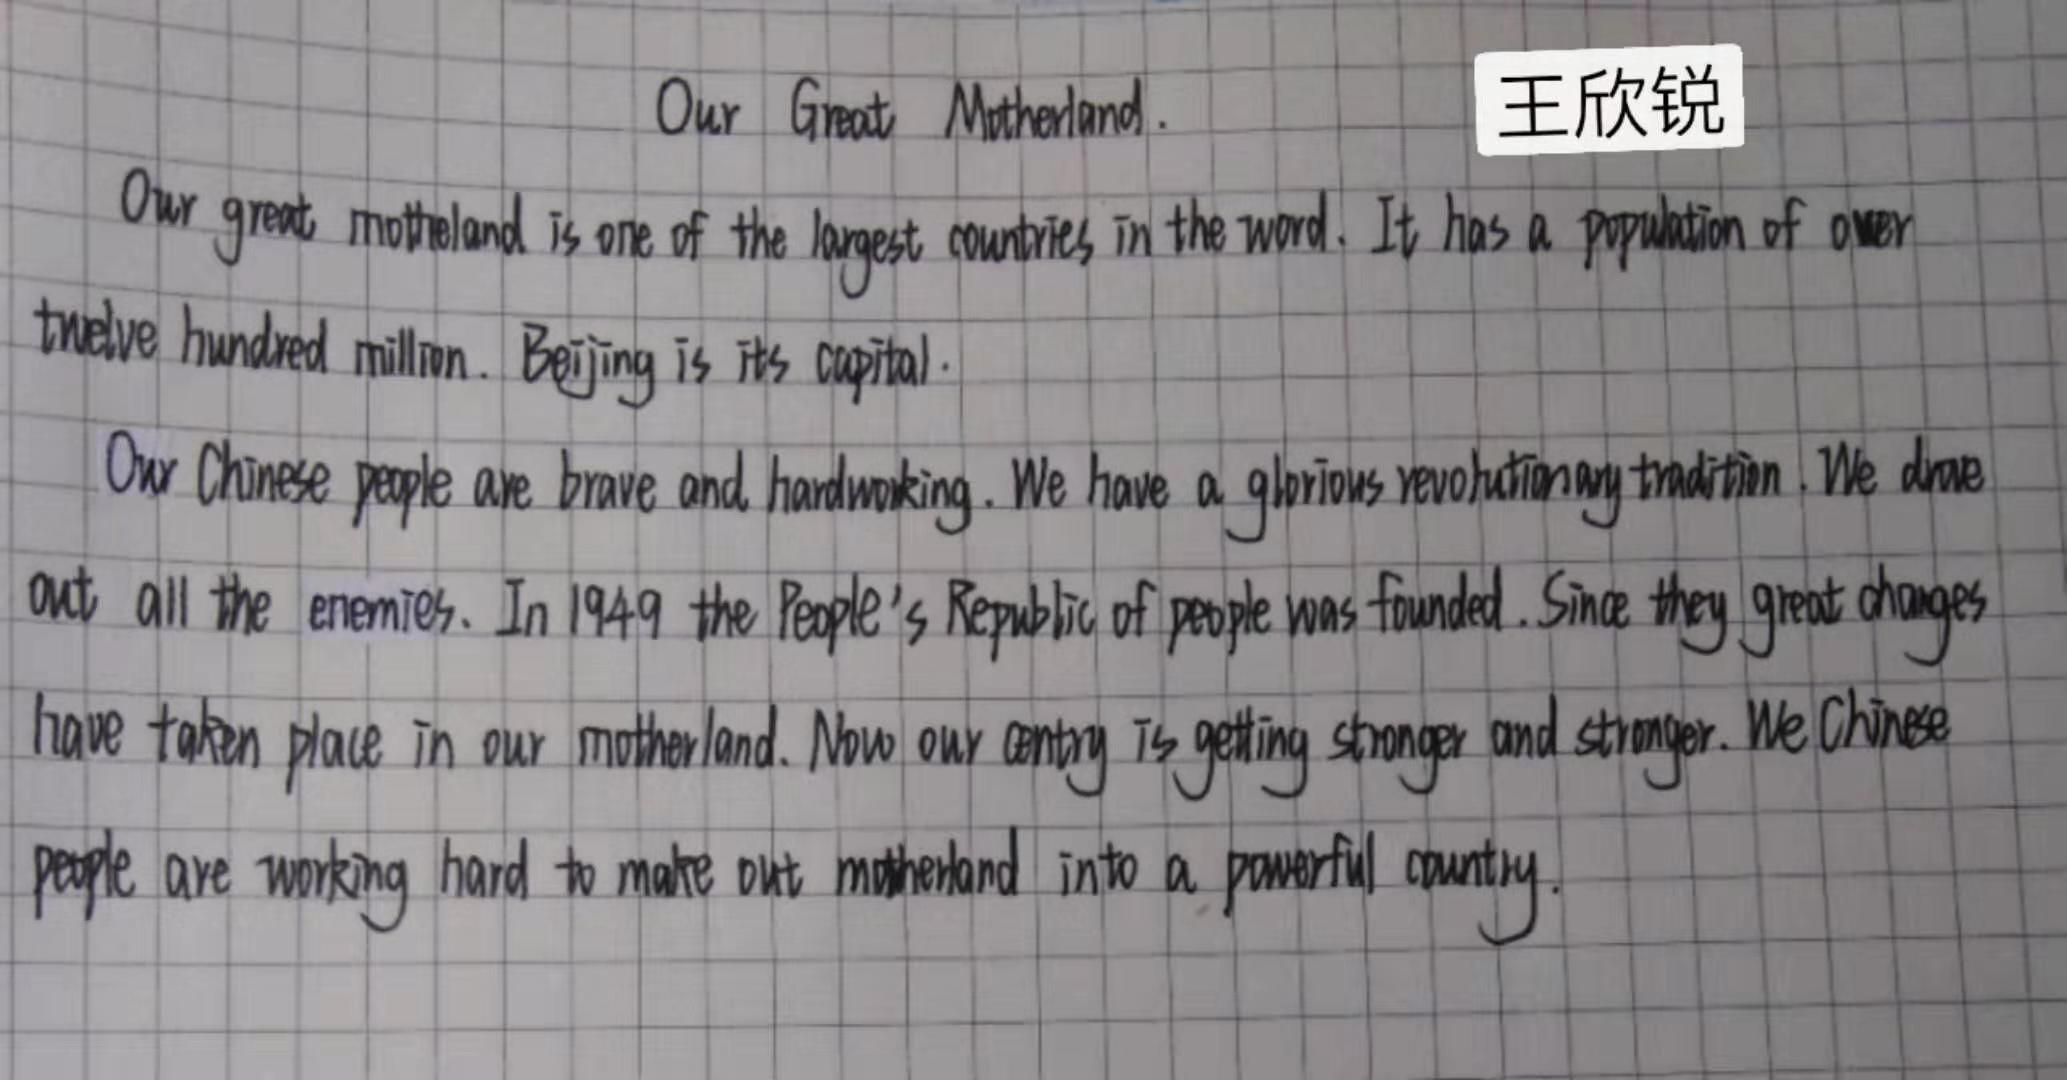 Our Great Motherland.
王欣锐
Our great motheland is one of the largest countries in the word. It has a population of over
twelve hundred million. Beijing is its capital.
Our Chinese people are brave and hardworking. We have a glorious revolutionary tradition. We drove
out all the enemies. In 1949 the People's Republic of people was founded. Since they great changes
have taken place in our motherland. Now our contry is getting stronger and stronger. We Chinese
people are working hard to make out motherland into a powerful country.